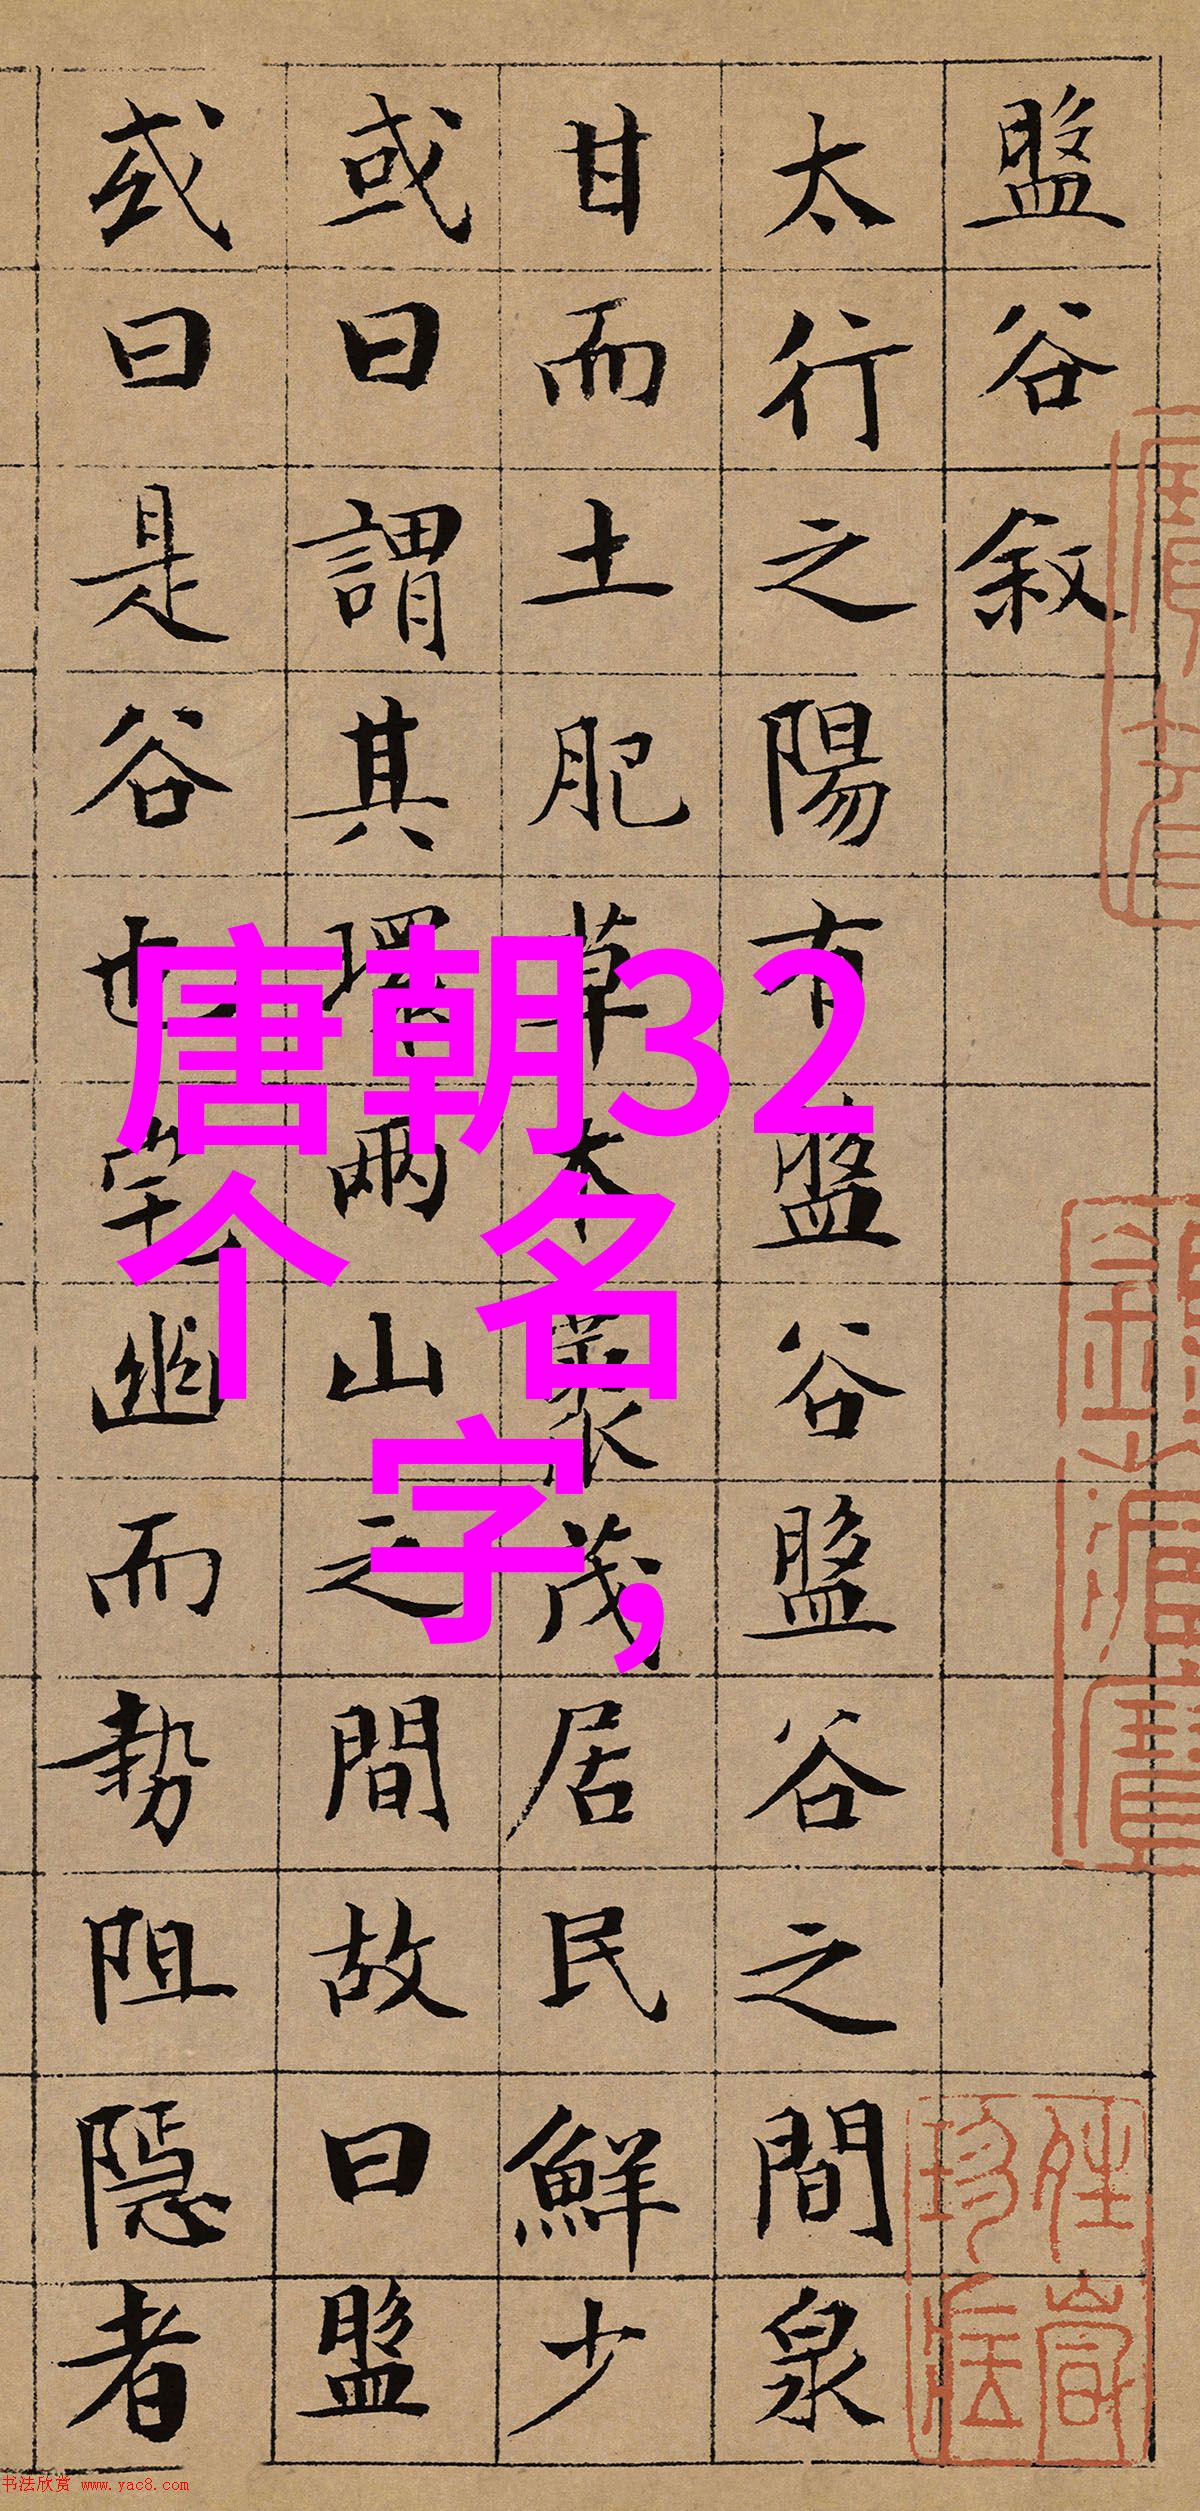 盤谷叙
太行之陽有盤谷盤谷之間泉
甘而土肥草木藂茂居民鮮少
或曰謂其環兩山之間故曰盤
或曰是谷也宅幽而勢阻隱者
唐朝32
个 名
字,
书法欣赏 www.yac8.com